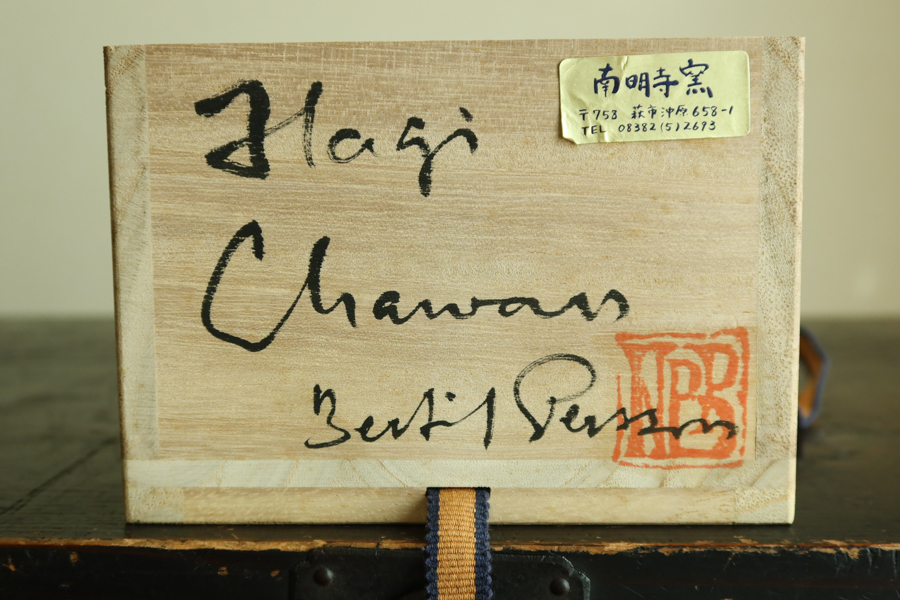 Hagi
Chawan
Bertil Persson
NPB
南明寺窯
〒758 萩市沖原658-1
TEL 08382(5)2693